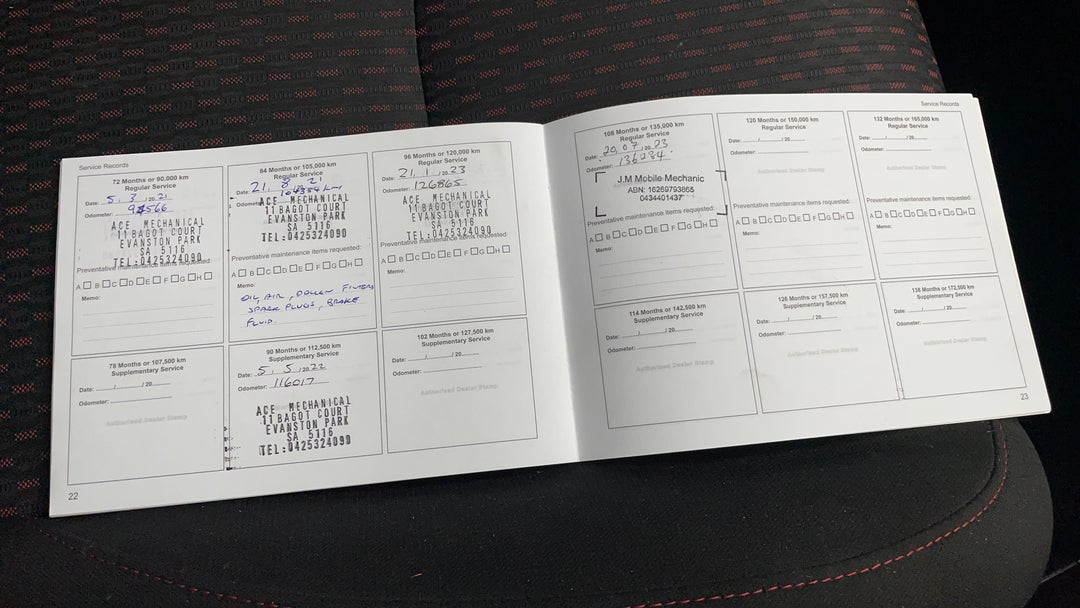 Service Records
72 Months or 90,000 km
Regular Service
Date: 5 / 3 / 2021
Odometer:
ACE MECHANICAL
11 BAGOT COURT
EVANSTON PARK
SA 5116
TEL:0425324090
Preventative maintenance items requested:
A B C D E F G H
Memo:
84 Months or 105,000 km
Regular Service
Date: 21. 8 21
Odometer:
ACE MECHANICAL
11 BAGOT COURT
EVANSTON PARK
SA 5116
TEL:0425324090
A B C D E F G H
Memo:
OIL, AIR, POLLEN FILTERS
SPARK PLUGS, BRAKE
FLUID.
96 Months or 120,000 km
Regular Service
Date: 21. 1 2023
Odometer: 126865
ACE MECHANICAL
11 BAGOT COURT
EVANSTON PARK
SA 5116
TEL:0425324090
Preventative maintenance items requested:
A B C D E F G H
Memo:
78 Months or 107,500 km
Supplementary Service
Date: / / 20
Odometer:
Authorised Dealer Stamp
90 Months or 112,500 km
Supplementary Service
Date: 5. 5 2022
Odometer: 116017
ACE MECHANICAL
11 BAGOT COURT
EVANSTON PARK
SA 5116
TEL:0425324090
102 Months or 127,500 km
Supplementary Service
Date: / / 20
Odometer:
Authorised Dealer Stamp
22
Service Records
108 Months or 135,000 km
Regular Service
Date: 20, 07, 2023
Odometer: 136234.
J.M Mobile Mechanic
ABN: 16269793865
0434401437
Preventative maintenance items requested:
A B C D E F G H
Memo:
120 Months or 150,000 km
Regular Service
Date: / / 20
Odometer:
Authorised Dealer Stamp
Preventative maintenance items requested:
A B C D E F G H
Memo:
132 Months or 165,000 km
Regular Service
Date: / / 20
Odometer:
Authorised Dealer Stamp
Preventative maintenance items requested:
A B C D E F G H
Memo:
114 Months or 142,500 km
Supplementary Service
Date: / / 20
Odometer:
Authorised Dealer Stamp
126 Months or 157,500 km
Supplementary Service
Date: / / 20
Odometer:
Authorised Dealer Stamp
138 Months or 172,500 km
Supplementary Service
Date: / / 20
Odometer:
Authorised Dealer Stamp
23